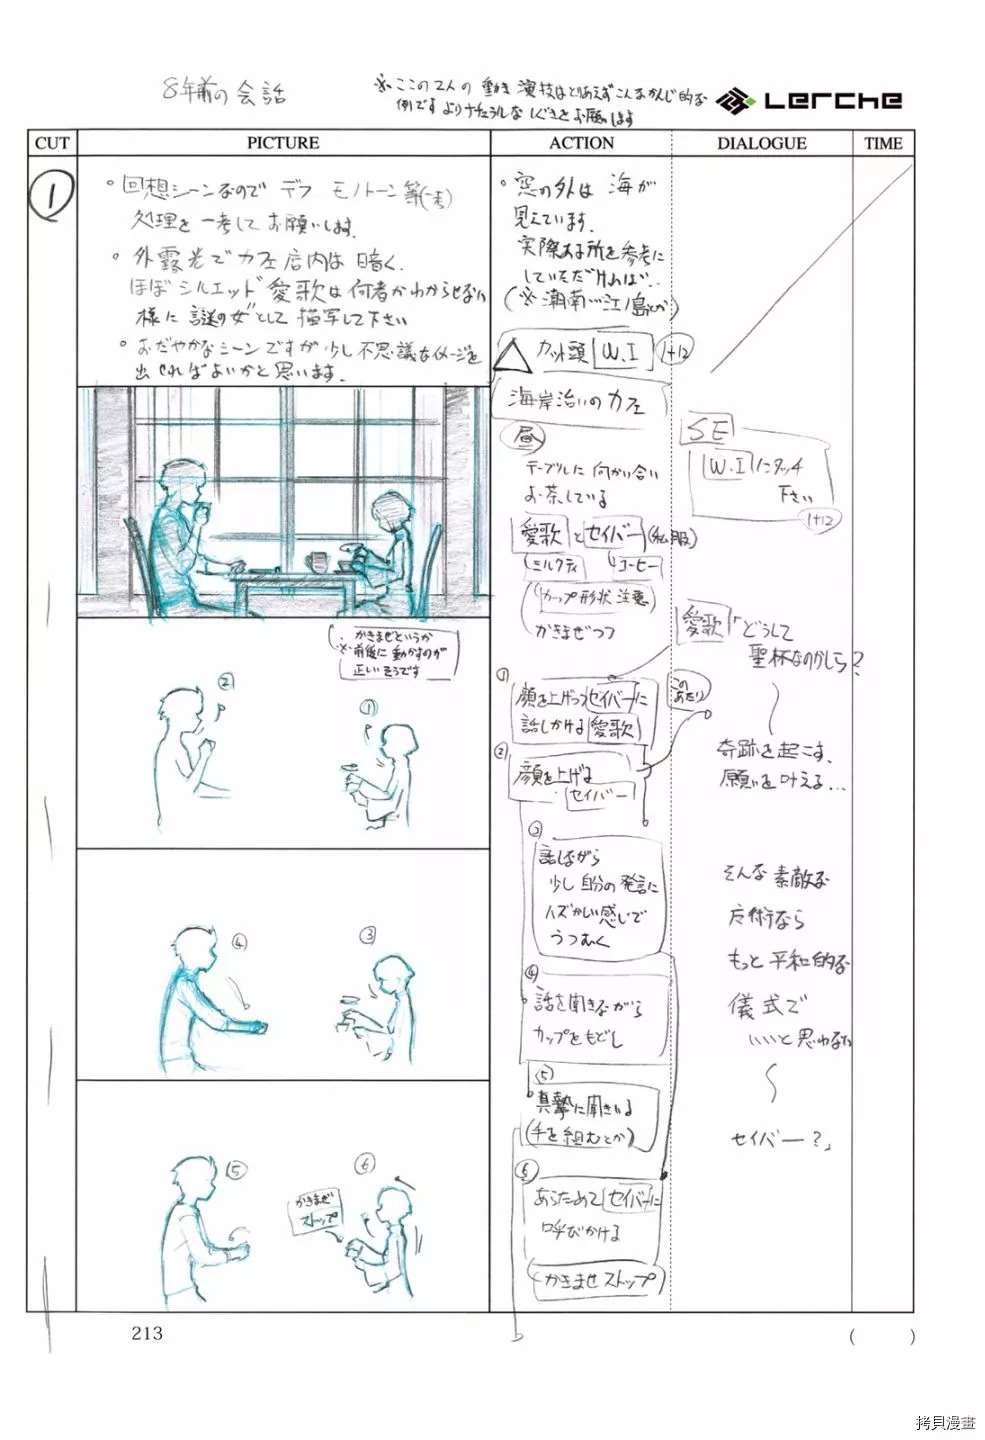 8年前の会話
※ここの2人の動き演技はとりあえずこんなかんじ的な
例です よりナチュラルなしぐさをお願いします
Lerche
CUT
PICTURE
ACTION
DIALOGUE
TIME
1
・回想シーンなので デフ モノトーン等(一考)
処理を一考して お願いします
・外露光でカフェ店内は暗く、
ほぼシルエット 愛歌は何者かわからせない
様に謎の女として描写して下さい
・おだやかなシーンですが少し不思議なイメージを
出せればよいかと思います.
・窓の外は海が
見えています.
実際ある所を参考に
していただければ…
(※湘南…江ノ島とか)
カット頭 W.I 1+12
海岸沿いのカフェ
昼
テーブルに向かい合い
お茶している
愛歌とセイバー(私服)
ミルクティ
コーヒー
カップ形状注意
かきまぜつつ
SE
W.Iにタッチ
下さい
1+12
かきまぜというか
※前後に動かすのが
正しいそうです
②
①
① 顔を上げつつセイバーに
話しかける愛歌
② 顔を上げる
セイバー
愛歌「どうして
聖杯なのかしら?
このあたり
奇跡を起こす、
願いを叶える…
③ 話しながら
少し自分の発言に
ハズかしい感じで
うつむく
そんな素敵な
魔術なら
もっと平和的な
儀式で
いいと思わない
セイバー?」
④
③
④ 話を聞きながら
カップをもどし
⑤ 真摯に聞きいる
(手を組むとか)
⑤
⑥
かきまぜ
ストップ
⑥ あらためてセイバーに
呼びかける
(かきまぜストップ)
213
( )
拷貝漫畫